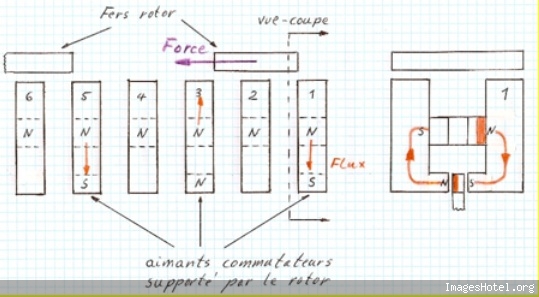 Fers rotor
vue-coupe
Force
6 5 4 3 2 1 1
N N N N N N S N
Flux
S N S N S
aimants commutateurs
supporté par le rotor
ImagesHotel.org